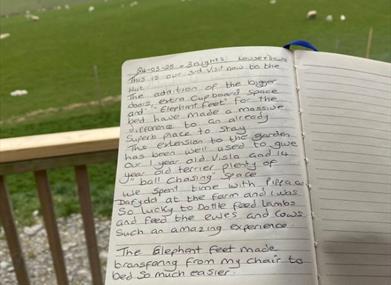 24-03-25 - 3 nights
This is our 3rd visit now to the
Hut.
The addition of the bigger
doors, extra Cupboard space
and "Elephant feet" for the
bed have made a massive
difference to an already
Superb place to stay
The extension to the garden
has been well used to give
our 1 year old Visla and 14
year old terrier plenty of
"ball Chasing" Space
We spent time with Pippa and
Dafydd at the farm and I was
So lucky to Bottle feed lambs
and feed the ewes and Cows.
Such an amazing experience
The Elephant feet made
transfering from my chair to
bed So much easier.